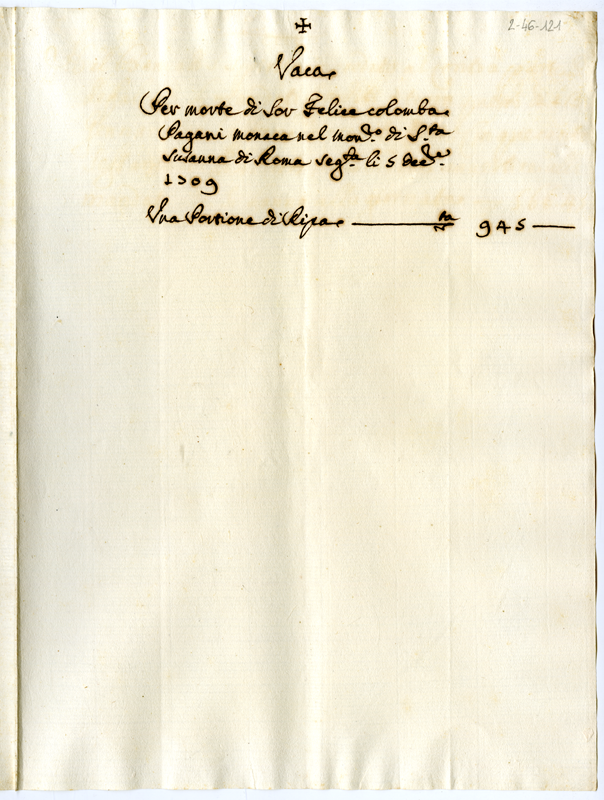 2-46-121
✠
Vaca
Per morte di Sor Felice colomba
Pagani monaca nel mon.ro di S.ta
Susanna di Roma seg.ta li 5 dec.e
1709
Una Portione di Ripa ——— 945 —